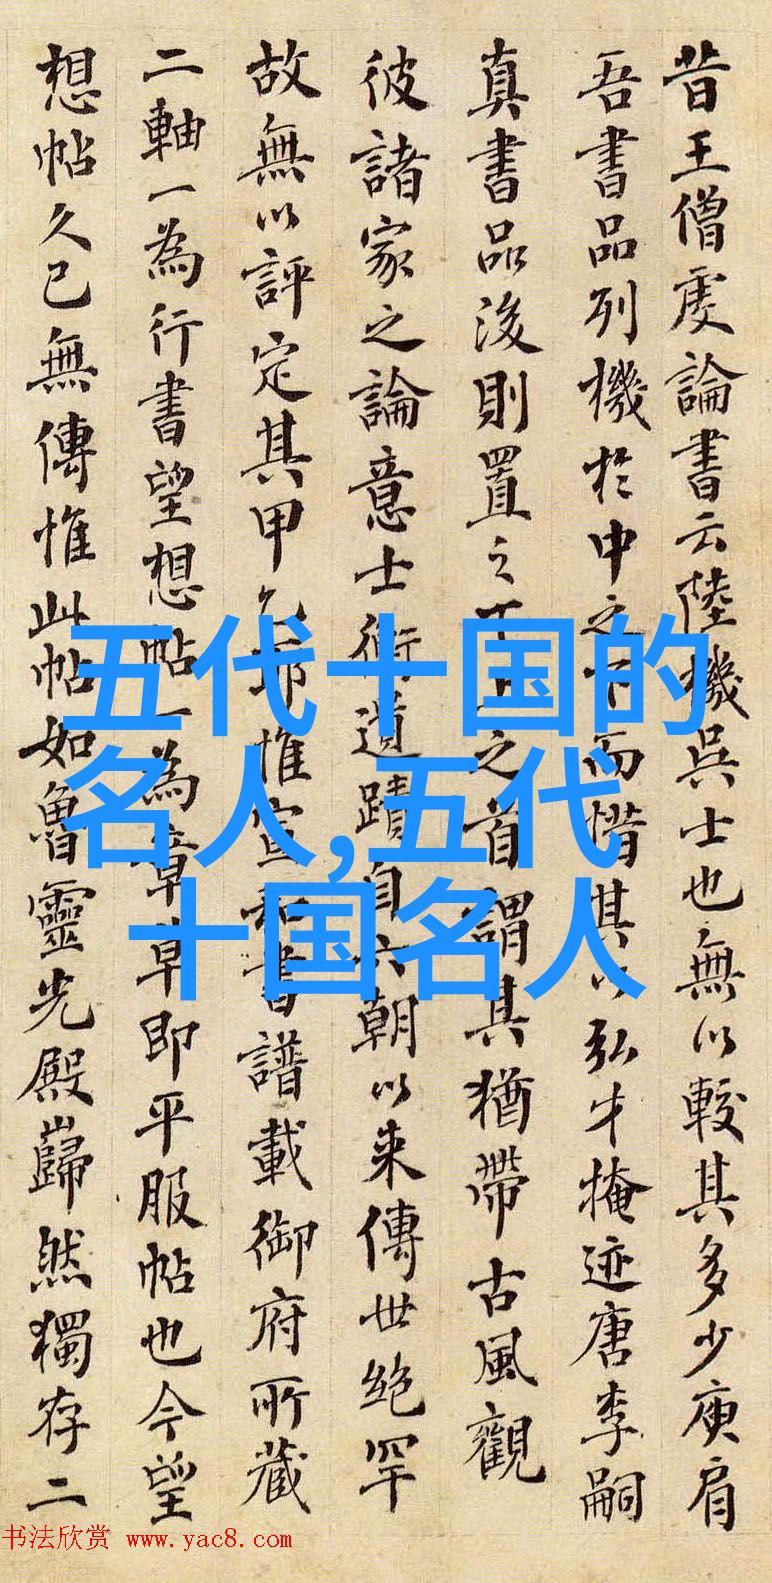 昔王僧虔論書云陸機吳士也無以較其多少庾肩
吾書品列機於中之下而惜其以弘才掩迹唐李嗣
真書品後則置之下上之首謂其猶帶古風觀
彼諸家之論意士衡遺蹟自六朝以来傳世絶罕
故無以評定其甲乙耶惟宣和書譜載御府所藏
二軸一為行書望想帖一為章草即平服帖也今望
想帖久已無傳惟此帖如魯靈光殿巋然獨存二
五代十国的
名人,五代
十国名人
书法欣赏 www.yac8.com